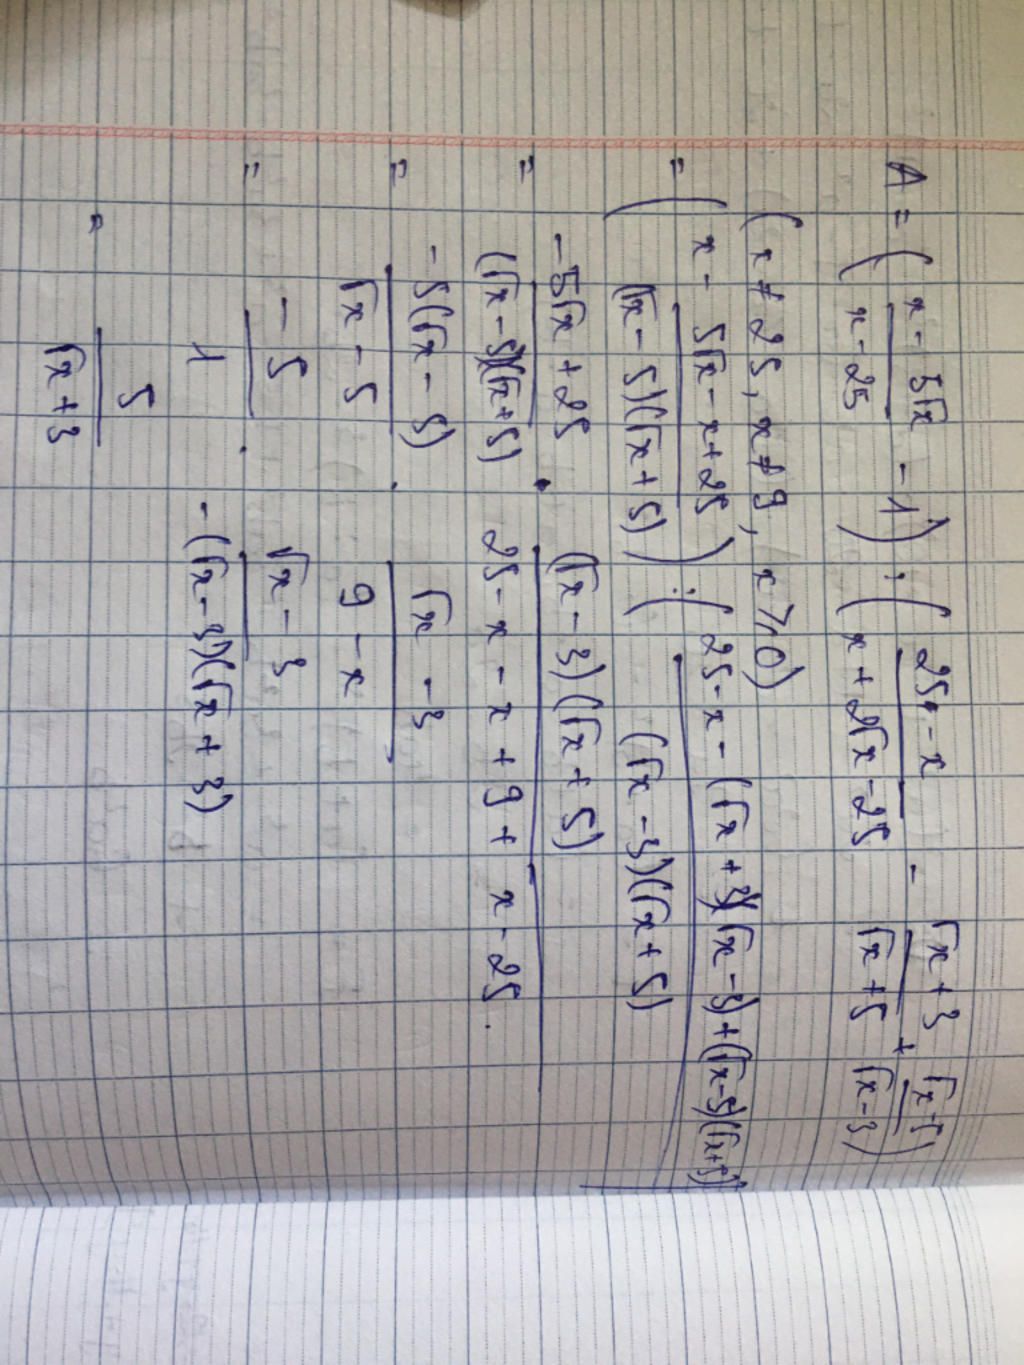 A = ( \frac{x - 5\sqrt{x}}{x - 25} - 1 ) : ( \frac{25 - x}{x + 2\sqrt{x} - 25} - \frac{\sqrt{x} + 3}{\sqrt{x} + 5} + \frac{\sqrt{x} - 5}{\sqrt{x} - 3} )
( x ≠ 25, x ≠ 9, x ⩾ 0 )
= ( \frac{x - 5\sqrt{x} - x + 25}{(\sqrt{x} - 5)(\sqrt{x} + 5)} ) : ( \frac{25 - x - (\sqrt{x} + 3)(\sqrt{x} - 3) + (\sqrt{x} - 5)(\sqrt{x} + 5)}{(\sqrt{x} - 3)(\sqrt{x} + 5)}
= \frac{-5\sqrt{x} + 25}{(\sqrt{x} - 5)(\sqrt{x} + 5)} . \frac{(\sqrt{x} - 3)(\sqrt{x} + 5)}{25 - x - x + 9 + x - 25} .
= \frac{-5(\sqrt{x} - 5)}{\sqrt{x} - 5} . \frac{\sqrt{x} - 3}{9 - x}
= \frac{-5}{1} . \frac{\sqrt{x} - 3}{-(\sqrt{x} - 3)(\sqrt{x} + 3)}
= \frac{5}{\sqrt{x} + 3}